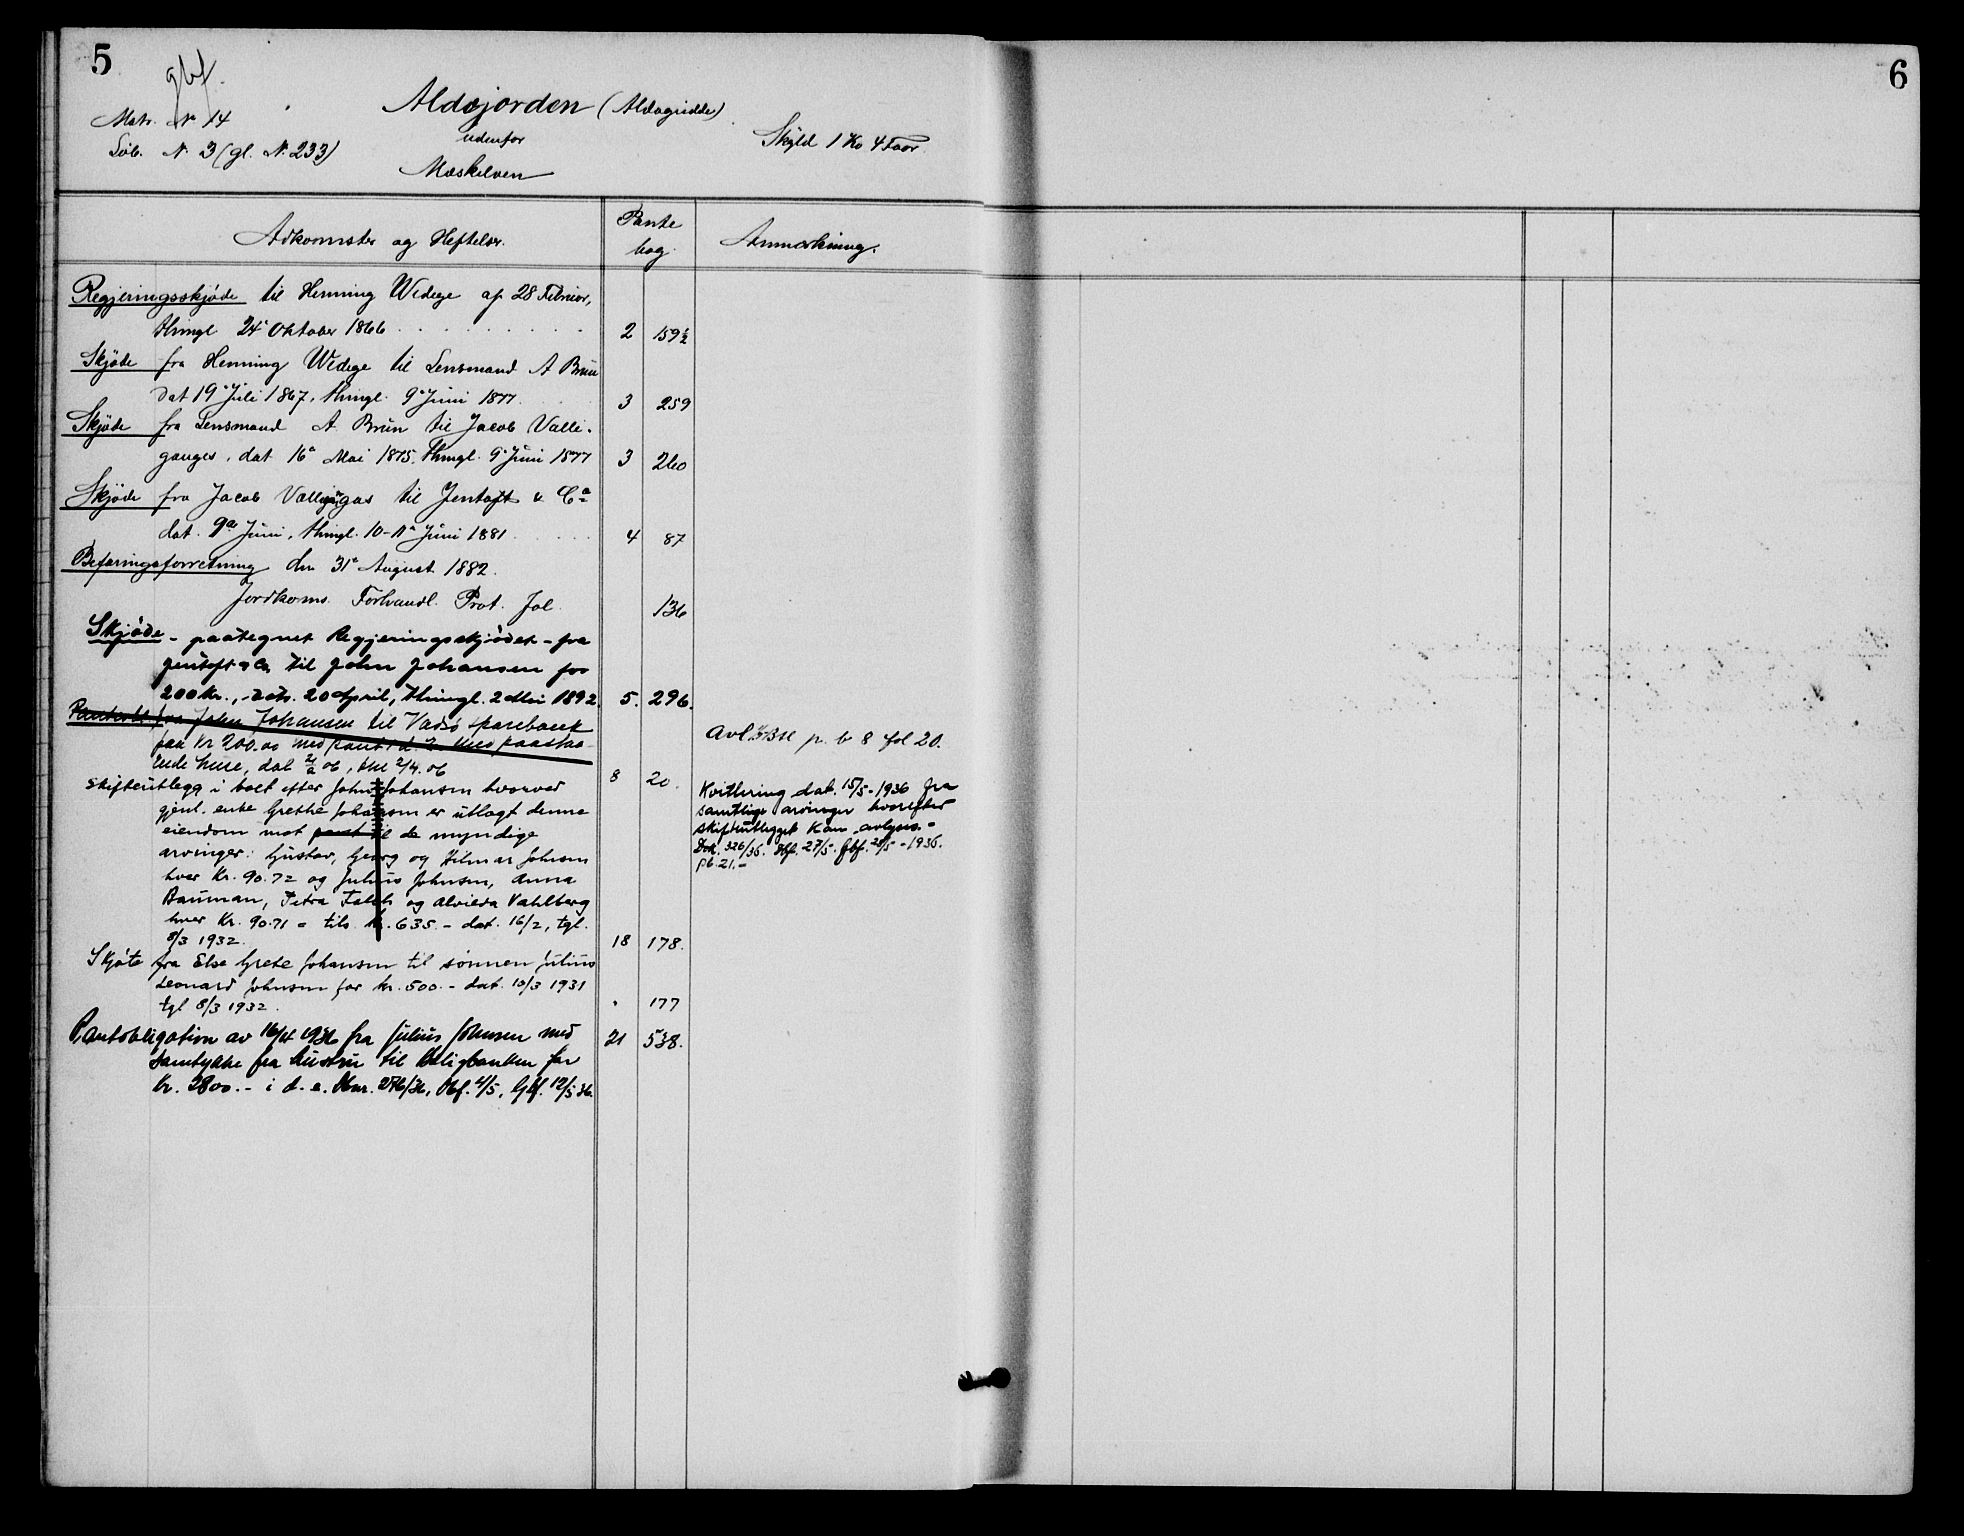 5
gbf.
Matr. No 14
Løb. No 3 (gl. No 233)
Aldajorden (Aldagiedde)
udenfor
Mæskelven
Skyld 1 Ko 4 Faar
Adkomster og Heftelser.
Pante
bog
Anmærkning.
Regjeringsskjøde til Henning Wedege af 28 Februar,
thingl 24 Oktober 1866 . . . . . . . . . 2 159½
Skjøde fra Henning Wedege til Lensmand A Brun
dat 19 Juli 1867, thingl. 9 Juni 1877. 3 259
Skjøde fra Lensmand A. Brun til Jacob Valli-
ganges, dat 16 Mai 1875, thingl. 9 Juni 1877 3 260
Skjøde fra Jacob til Jentoft & Co
dat. 9de Juni, thingl. 10-11 Juni 1881 . . . . . 4 87
Befaringsforretning den 31 August 1882.
Jordkoms. Forhandl. Prot. Fol. 136
Skjøde - paategnet Regjeringsskjødet - fra
Jentoft & Co. til John Johansen for
200 kr., dat. 20 April, thingl. 2 Mai 1892. 5. 296.
Panteobl. fra John Johansen til Vadsø sparebank
paa Kr 200.00 med pant i d. E. med paastaa-
ende huse, dat 06, 2/4.06 8 20.
Avl. p. b 8 fol 20.
Skifteutlegg i boet efter John Johansen hvorved
gjenl. enke Grethe Johansen er utlagt denne
eiendom mot pant til de myndige
arvinger: Gustav, Georg og Hilmar Johnsen
hver kr. 90.72 og Julius Johnsen, Anna
Bauman, Petra og Alvilda Vahlberg
hver kr. 90.71 = tils. kr. 635.- dat. 16/2, tgl.
8/3 1932. 18 178.
Kvittering dat. 15/5-1936 fra
samtlige arvinger hvorefter
skifteutlegget kan avlyses.-
Dok. 326/36. Dbf. 27/5. gbf. 28/5-1936.
pb. 21.-
Skjøte fra Else Grete Johansen til sønnen Julius
Leonard Johnsen for kr. 500.- dat. 10/3 1931
tgl 8/3 1932. " 177
Pantobligation av 16/4 1936 fra Julius Johnsen med
samtykke fra hustru til Boligbanken for
kr. 2800.- i d. e. Dnr. 276/36, Dbf. 4/5, Gbf. 12/5 36. 21 538.
6